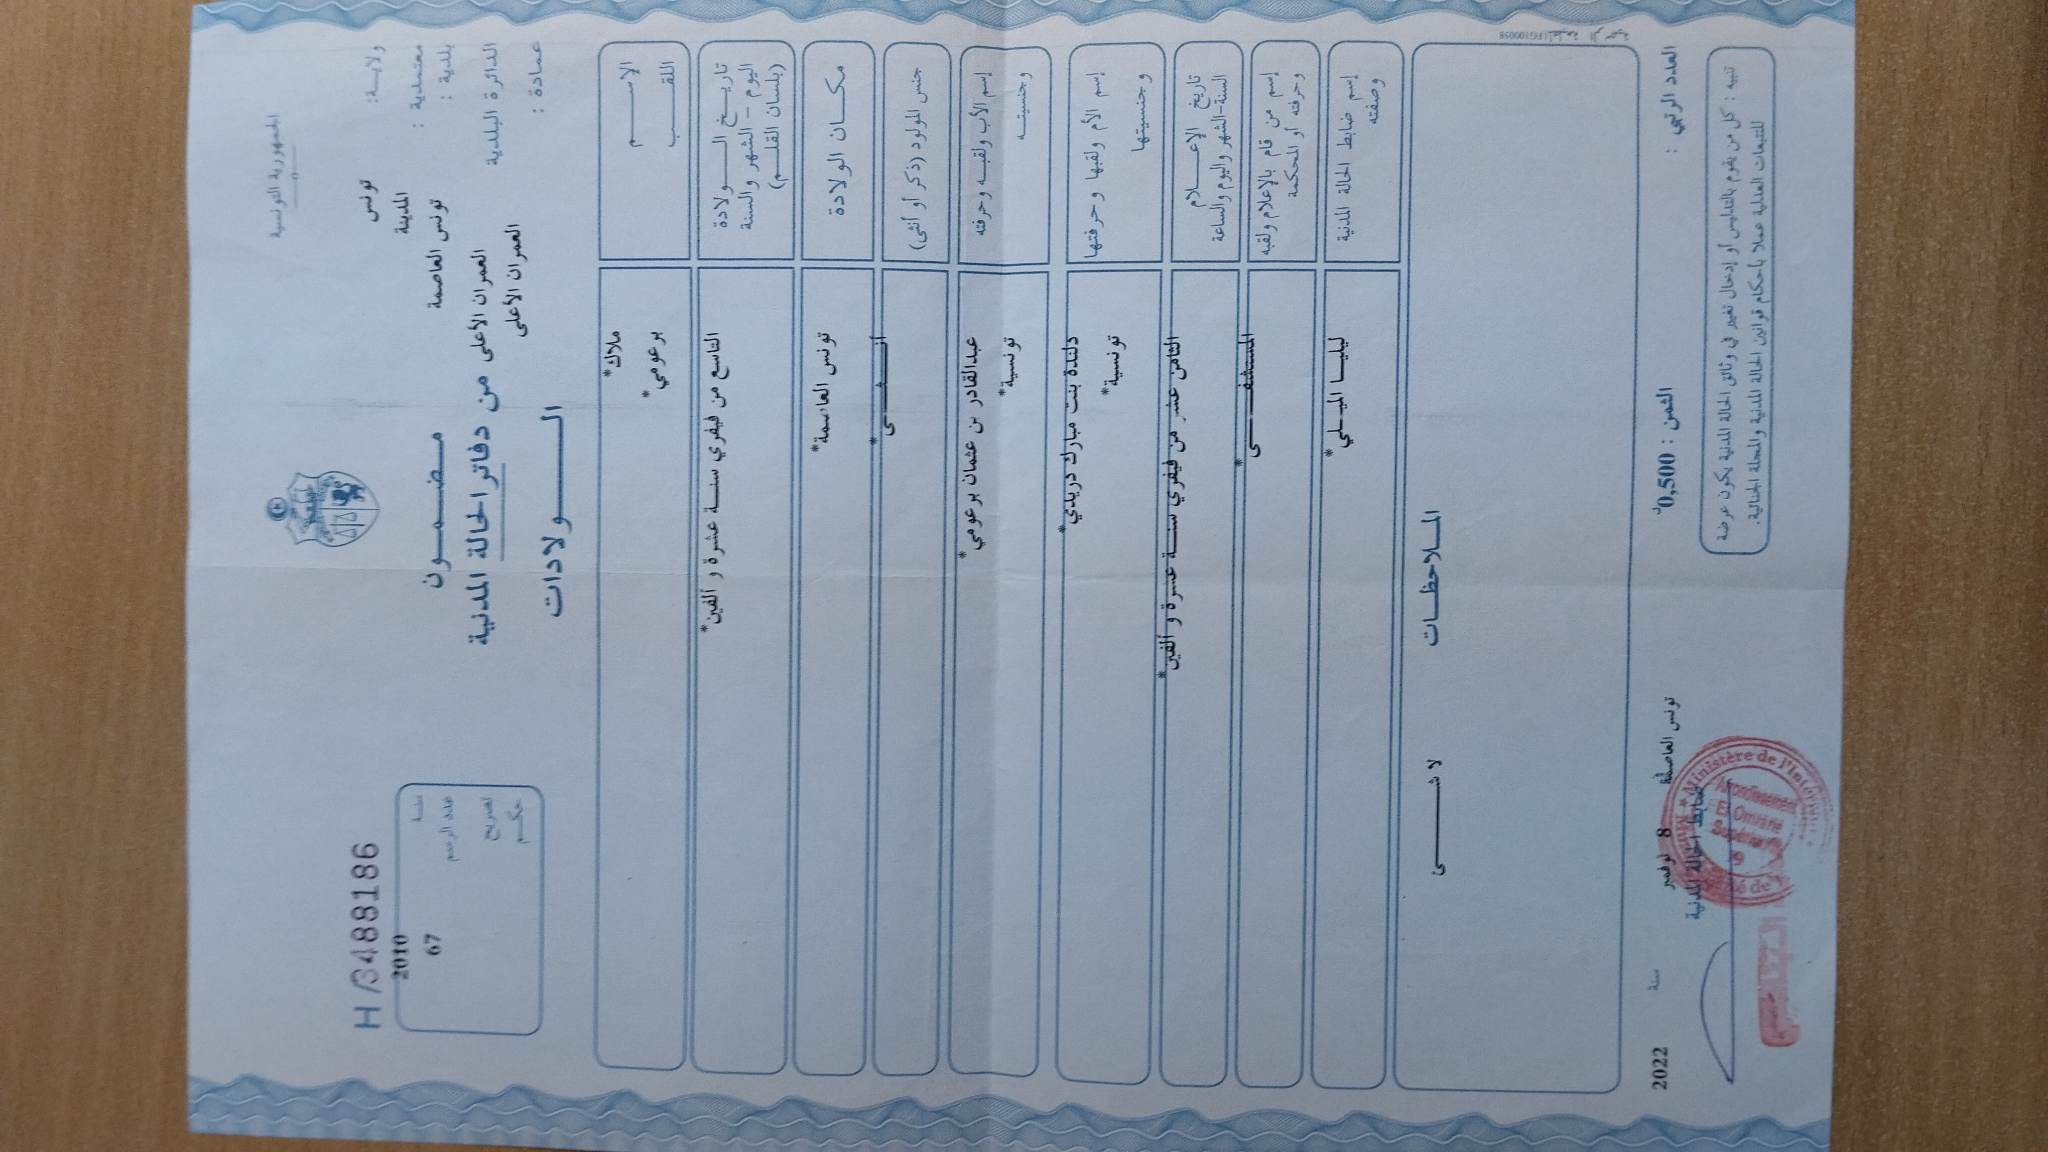 الجمهورية التونسية
ولاية: تونس
معتمدية : المدينة
بلدية : تونس العاصمة
الدائرة البلدية العمران الأعلى
عمادة : العمران الأعلى
H/3488186
سنة 2010
عدد الرسم 67
تصريح
حكم
مضمون
من دفاتر الحالة المدنية
الولادات
الإسم ملاك*
اللقب برعومي*
تاريخ الولادة
اليوم - الشهر والسنة
(بلسان القلم)
التاسع من فيفري سنة عشرة و ألفين*
مكان الولادة تونس العاصمة*
جنس المولود (ذكر أو أنثى) أنثى*
إسم الأب ولقبه وحرفته عبدالقادر بن عثمان برعومي*
وجنسيته تونسية*
إسم الأم ولقبها وحرفتها دلندة بنت مبارك دريدي*
وجنسيتها تونسية*
تاريخ الإعلام
السنة-الشهر واليوم والساعة
الثامن عشر من فيفري سنة عشرة و ألفين*
إسم من قام بالإعلام ولقبه
وحرفته أو المحكمة
المستشفى*
إسم ضابط الحالة المدنية
وصفته
ليليا الميلي*
الملاحظات
لا شئ
العدد الرتبي :
الثمن : 0,500د
تونس العاصمة 8 نوفمبر سنة 2022
ضابط الحالة المدنية
Ministère de l'Intérieur
Arrondissement
El Omrane
Supérieur
تنبيه : كل من يقوم بالتدليس أو إدخال تغيير في وثائق الحالة المدنية يكون عرضة
للتتبعات العدلية عملا بأحكام قوانين الحالة المدنية والمجلة الجنائية.